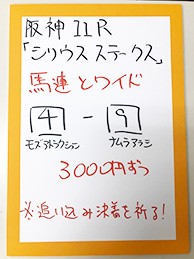 阪神11R
「シリウスステークス」
馬連とワイド
4 - 9
モズアトラクション ナムラアラシ
3000円ずつ
※追い込み決着を祈る!